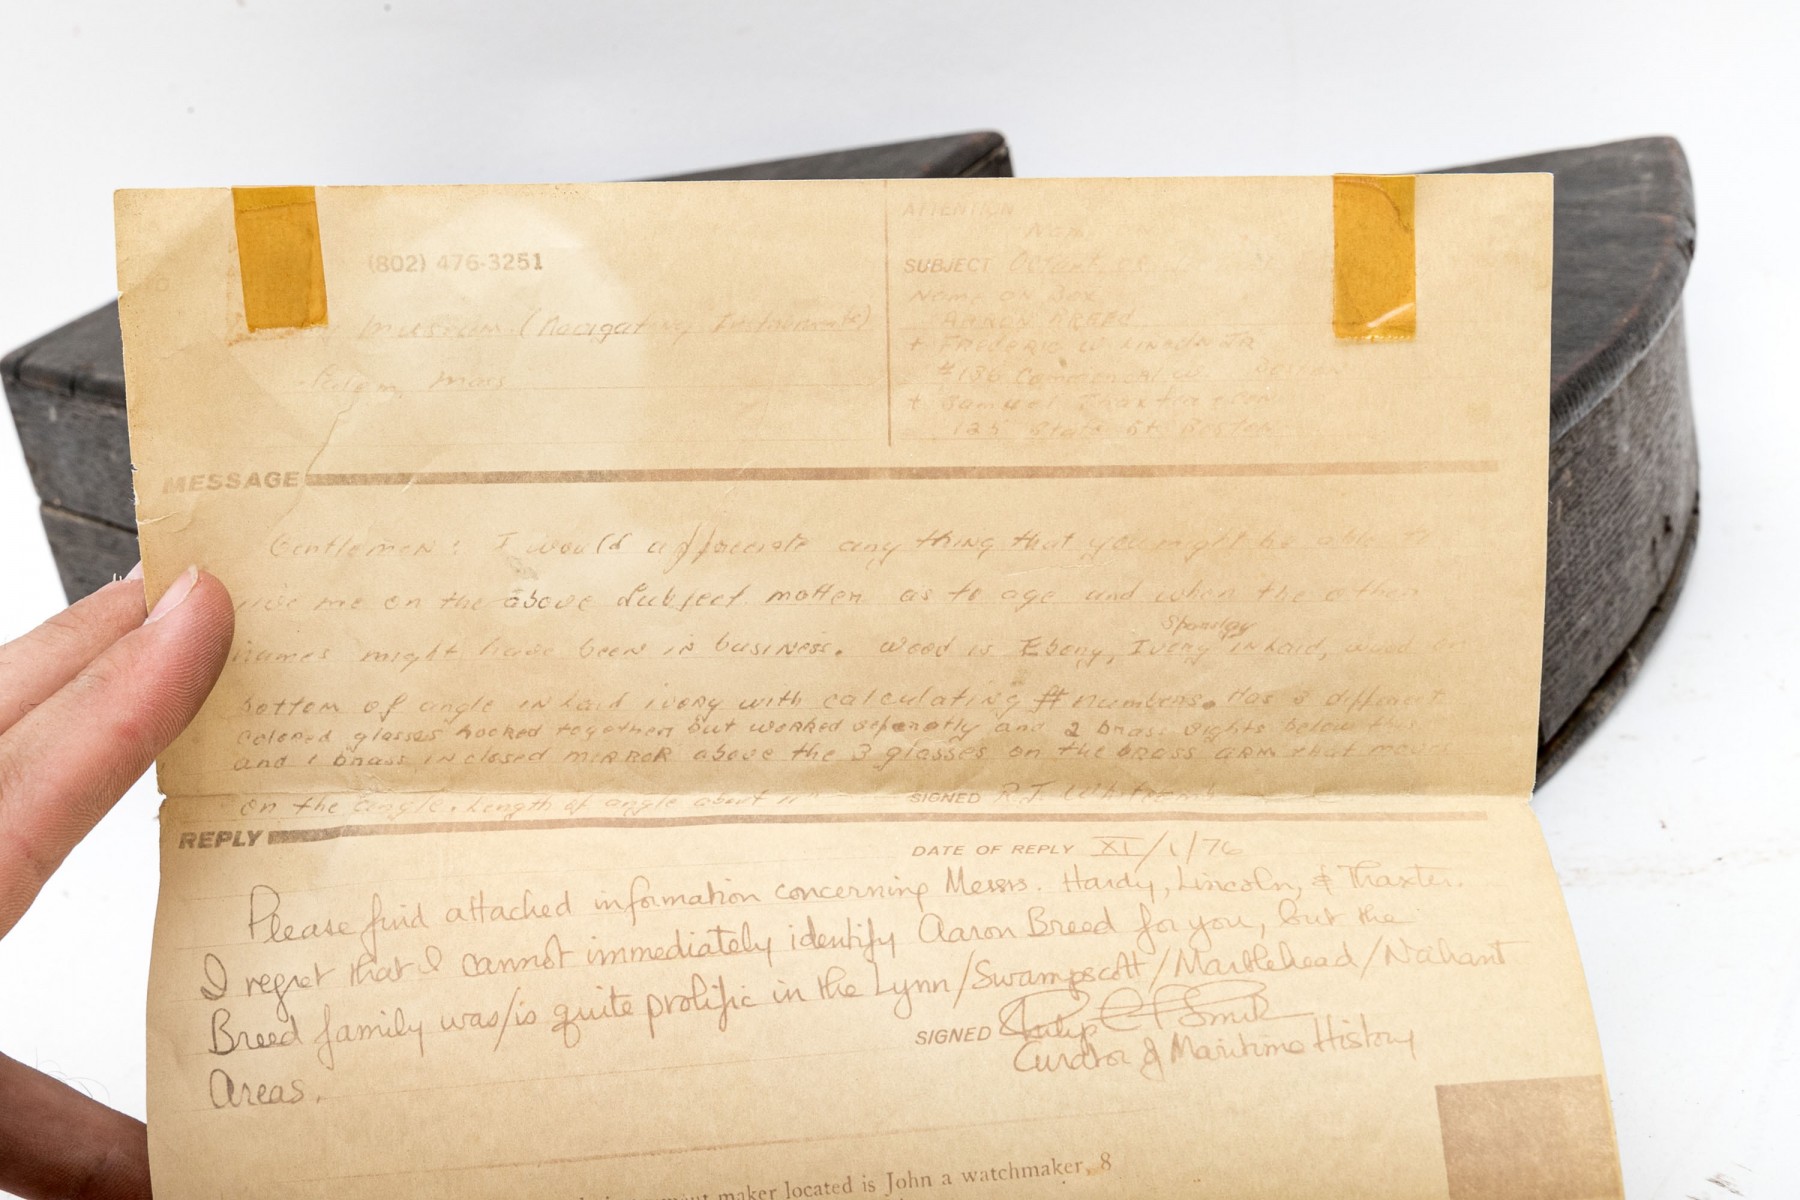 TO
(802) 476-3251
Museum (Navigating Instruments)
Salem, Mass
ATTENTION
SUBJECT Octant
Name on Box
AARON BREED
+ FREDERIC W. LINCOLN JR
#136 Commercial St. Boston
+ Samuel Thaxter & Son
125 State St. Boston
MESSAGE
Gentlemen: I would appreciate any thing that you might be able to
give me on the above Subject matter as to age and when the other
names might have been in business. Wood is Ebony, Ivory inlaid, wood on
bottom of angle inlaid ivory with calculating # numbers. Has 3 different
colored glasses hooked together but worked seperatly and 2 brass sights below this
and 1 brass inclosed MIRROR above the 3 glasses on the brass ARM that moves
on the angle. Length of angle about 11"
SIGNED R.J. Whitcomb
REPLY
DATE OF REPLY XI/1/76
Please find attached information concerning Messrs. Hardy, Lincoln, & Thaxter.
I regret that I cannot immediately identify Aaron Breed for you, but the
Breed family was/is quite prolific in the Lynn/Swampscott/Marblehead/Nahant
Areas.
SIGNED Philip C F Smith
Curator of Maritime History
maker located is John a watchmaker, 8